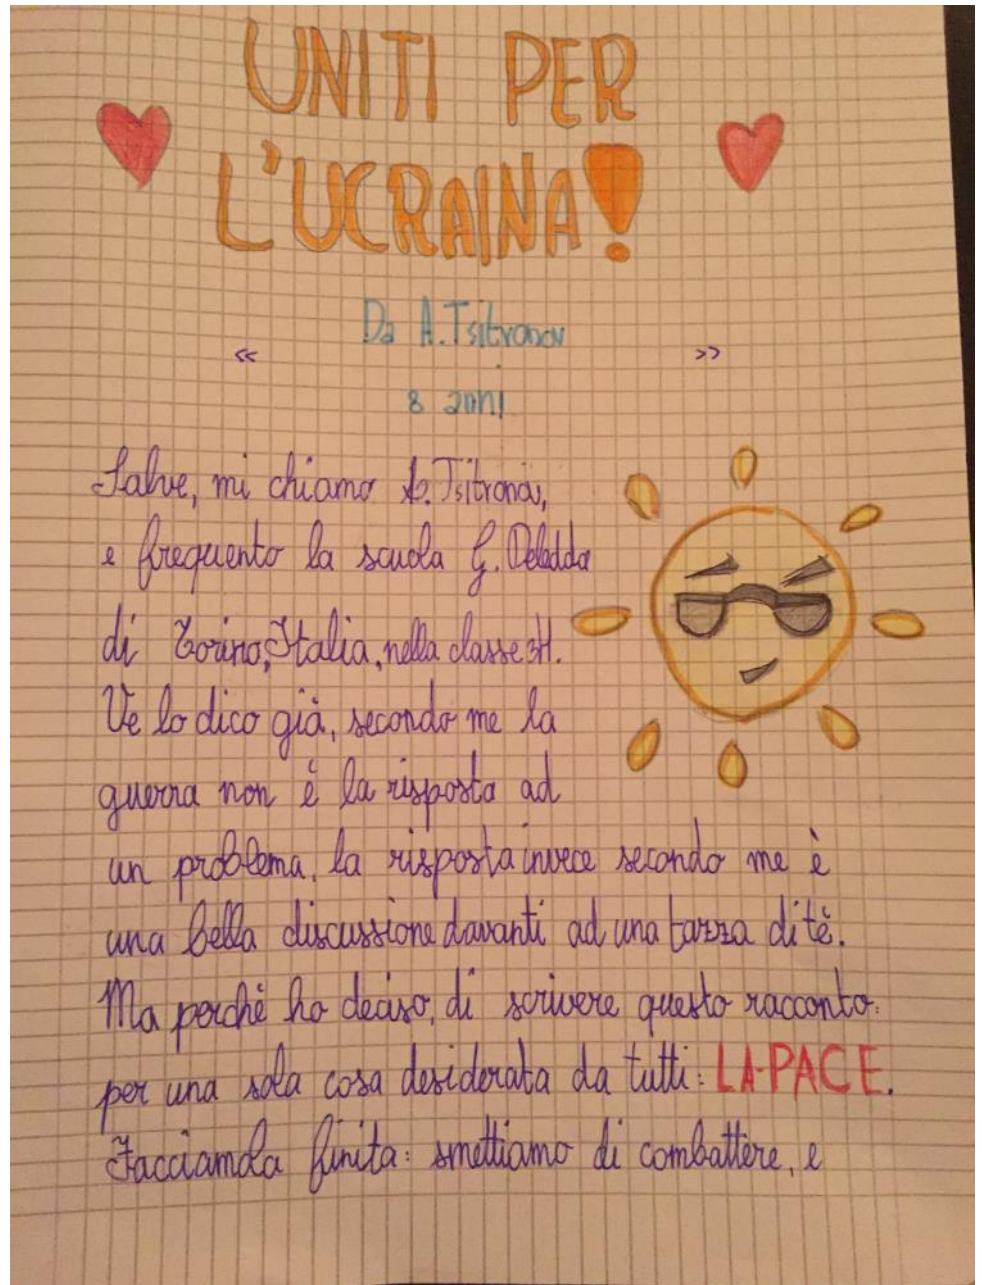 UNITI PER
L'UCRAINA!
Da A. Tsitronov
« »
8 anni
Salve, mi chiamo A. Tsitronov,
e frequento la scuola G. Deledda
di Torino, Italia, nella classe 3H.
Ve lo dico già, secondo me la
guerra non è la risposta ad
un problema, la risposta invece secondo me è
una bella discussione davanti ad una tazza di tè.
Ma perché ho deciso, di scrivere questo racconto:
per una sola cosa desiderata da tutti: LA PACE.
Facciamola finita: smettiamo di combattere, e